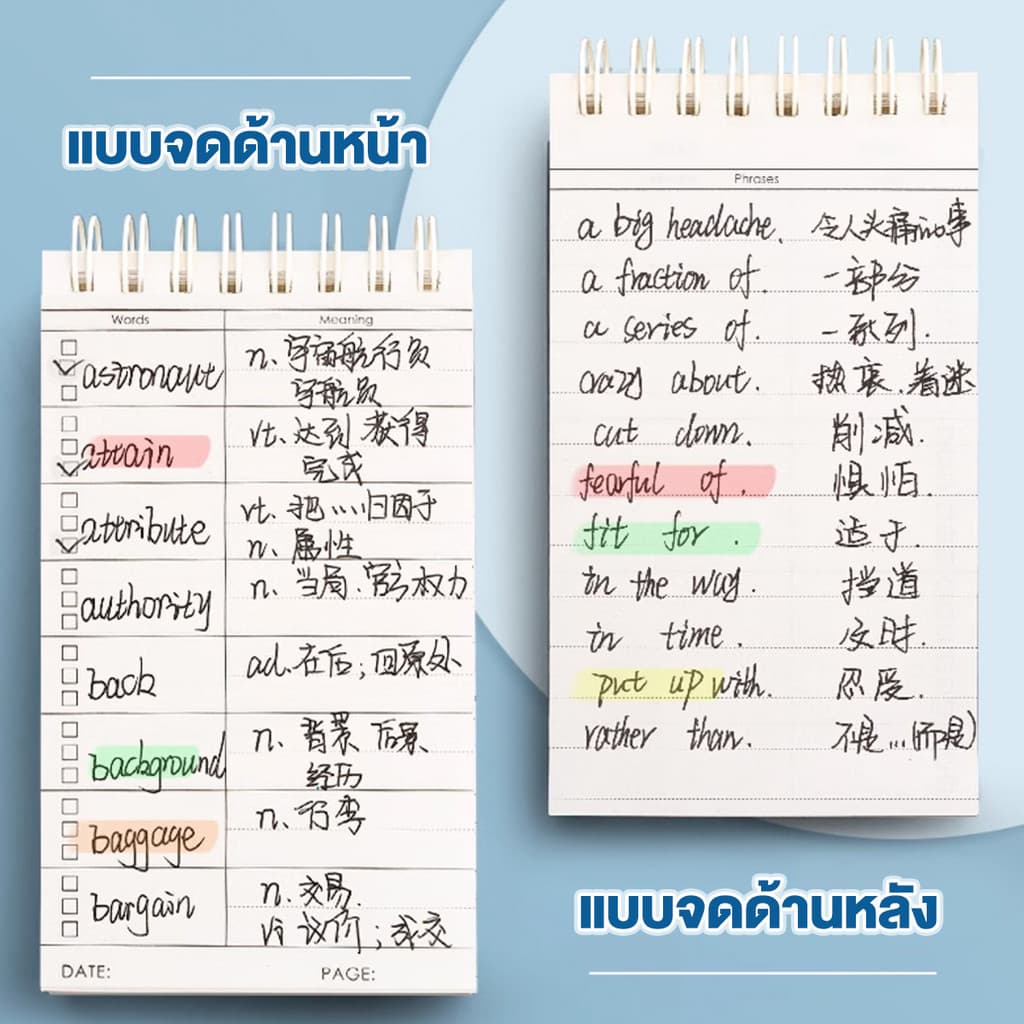 แบบจดด้านหน้า
Words Meaning
astronaut n. 宇宙航行员
宇航员
attain vt. 达到 获得
完成
attribute vt. 把……归因于
n. 属性
authority n. 当局. 官方 权力
back ad. 在后；回原处
background n. 背景 后景
经历
baggage n. 行李
bargain n. 交易
vi 议价；成交
DATE: PAGE:
Phrases
a big headache. 令人头痛的事
a fraction of. 一部分
a series of. 一系列.
crazy about. 热衷.着迷
cut down. 削减.
fearful of. 惧怕.
fit for. 适于.
in the way. 挡道
in time. 及时.
put up with. 忍受.
rather than. 不是…(而是)
แบบจดด้านหลัง